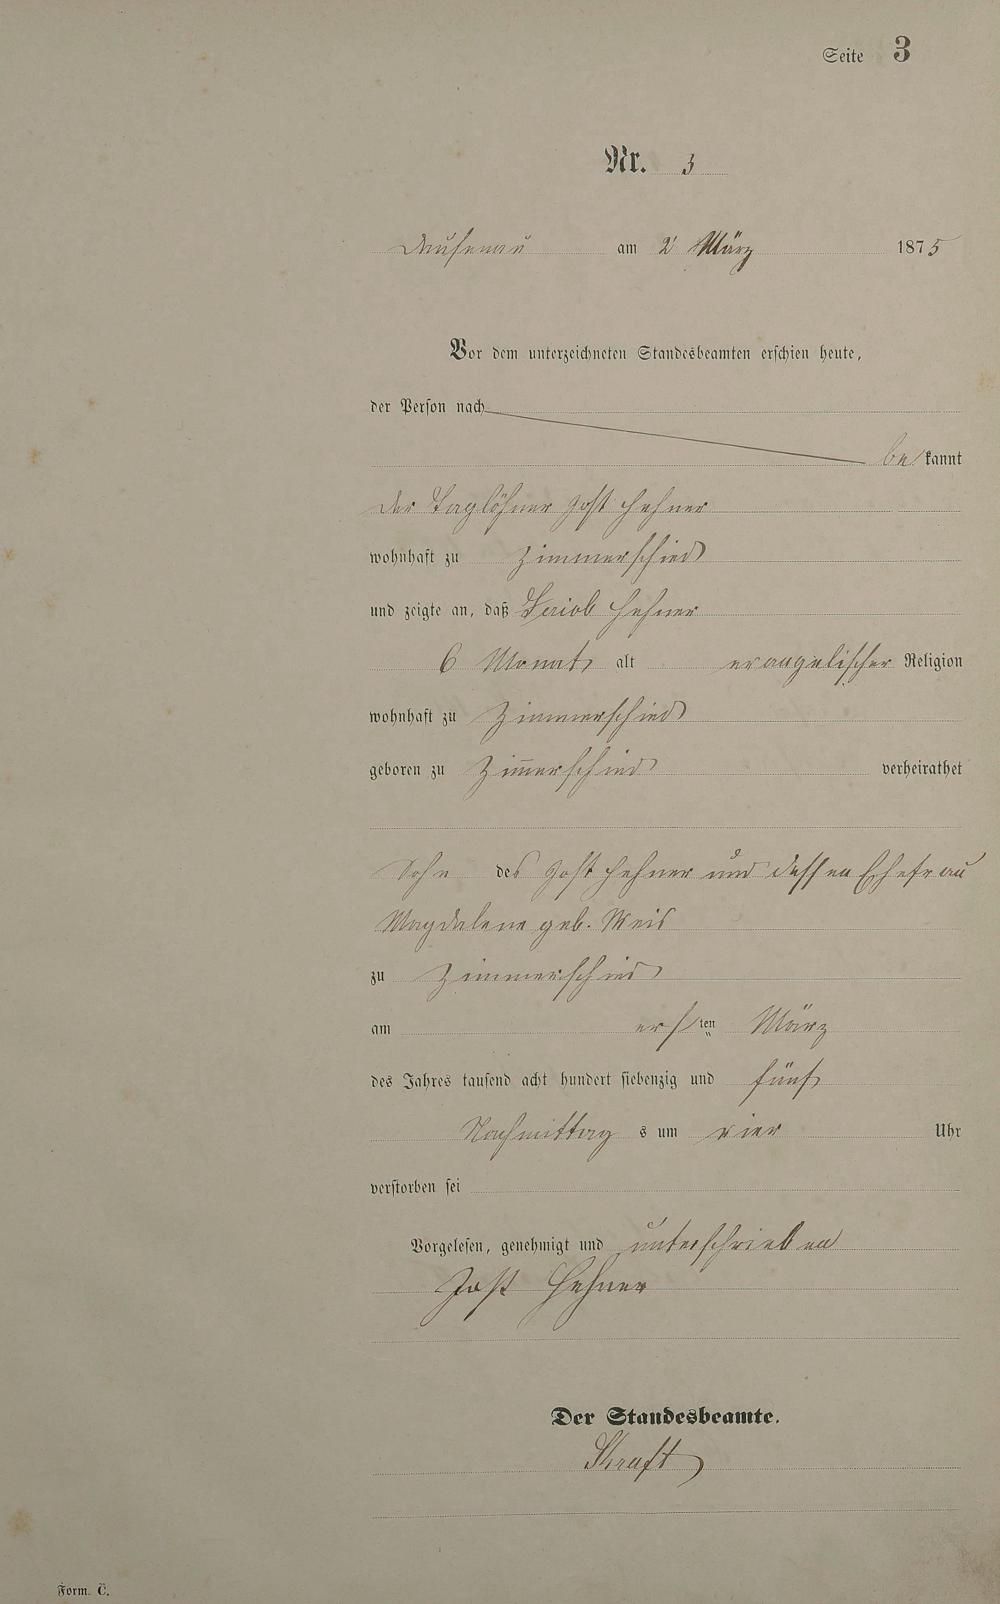 Seite 3
Nr. 3
Dausenau am 2 März 1875
Vor dem unterzeichneten Standesbeamten erschien heute,
der Person nach
bekannt
der Taglöhner Jost Hehner
wohnhaft zu Zimmerschied
und zeigte an, daß Jacob Hehner
6 Monat alt evangelischer Religion
wohnhaft zu Zimmerschied
geboren zu Zim̅erschied verheirathet
Sohn des Jost Hehner und dessen Ehefrau
Magdalene geb. Weis
zu Zimmerschied
am ersten März
des Jahres tausend acht hundert siebenzig und fünf
Nachmittags um vier Uhr
verstorben sei
Vorgelesen, genehmigt und unterschrieben
Jost Hehner
Der Standesbeamte.
Kraft
Form. C.